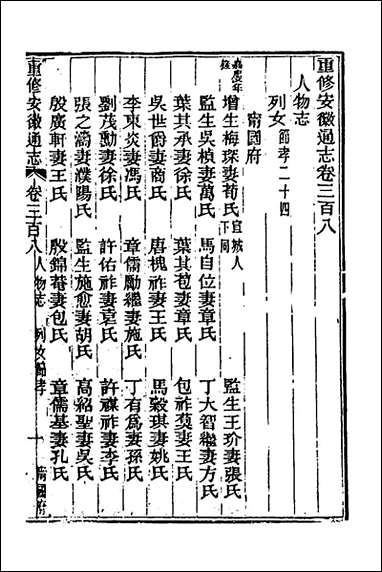 重修安徽通志卷三百八
人物志
列女 節孝二十四
甯國府
嘉慶年
增生梅琛妻荀氏 宣城人下同
監生王玠妻張氏
監生吳楨妻萬氏 馬自位妻章氏 丁大智繼妻方氏
葉其承妻徐氏 葉其苞妻章氏 包祚蓂妻王氏
吳世爵妻商氏 唐槐祚妻王氏 馬穀琪妻姚氏
李東炎妻馮氏 章儒勵繼妻施氏 丁有爲妻孫氏
劉茂勳妻徐氏 許佑祚妻袁氏 許祺祚妻李氏
張之潏妻濮陽氏 監生施愈妻胡氏 高紹聖妻吳氏
殷廣軒妻王氏 殷錦菴妻包氏 章儒基妻孔氏
重修安徽通志 卷三百八 人物志 列女節孝 一 甯國府